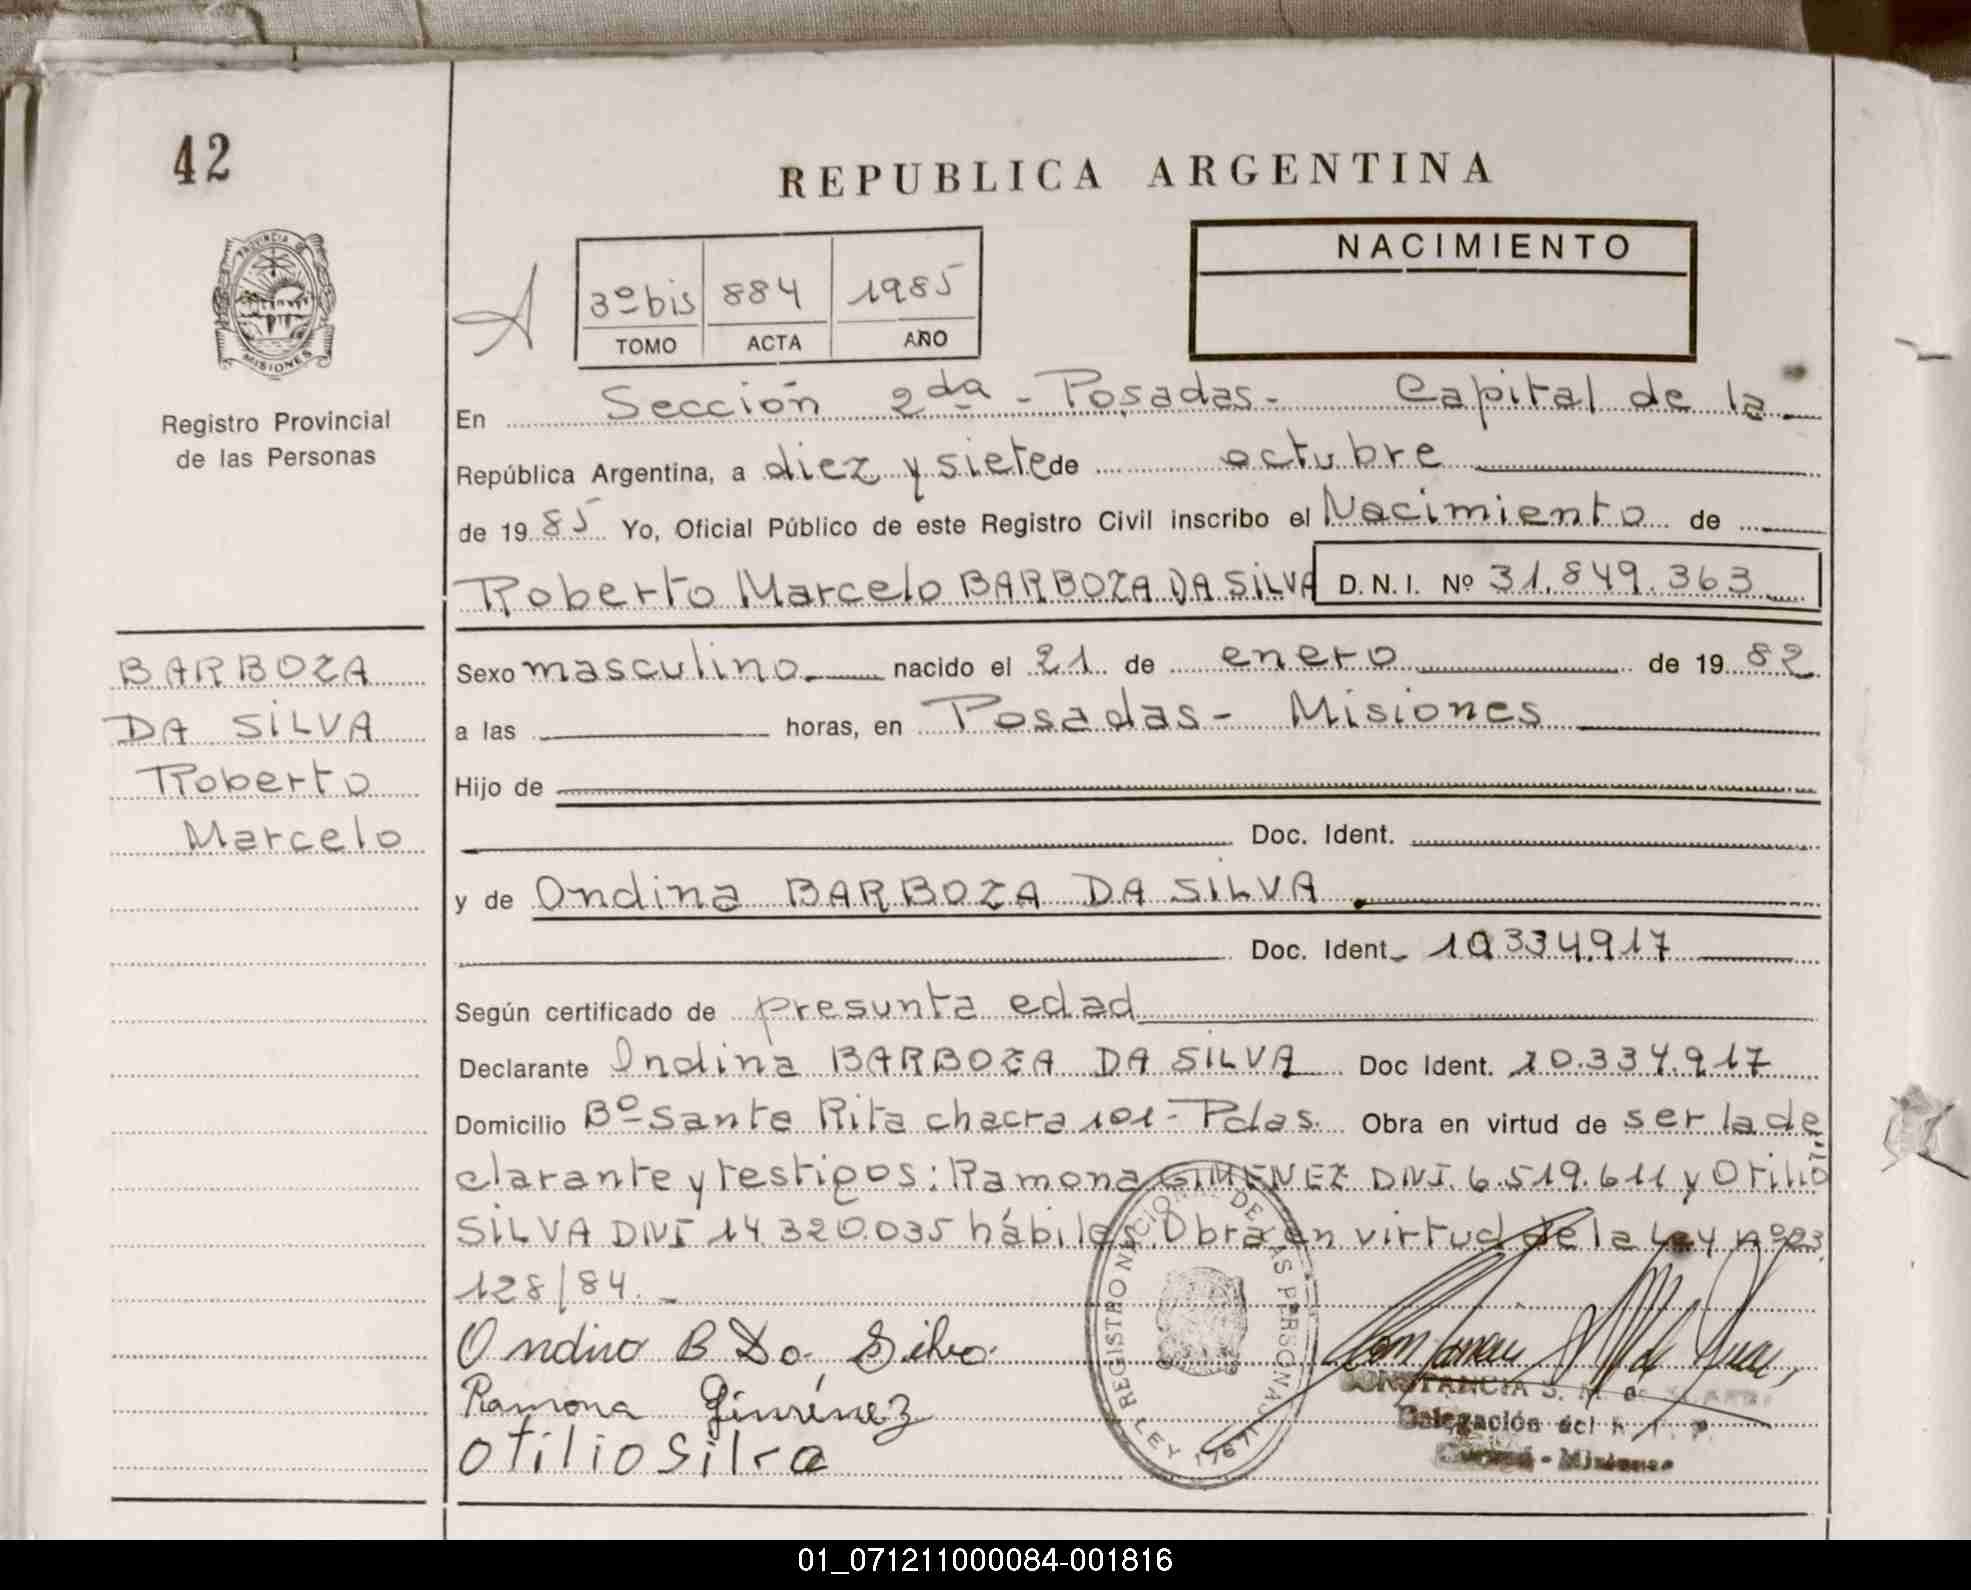 42
REPUBLICA ARGENTINA
PROVINCIA DE
MISIONES
Registro Provincial
de las Personas
A
3º bis 884 1985
TOMO ACTA AÑO
NACIMIENTO
En Sección 2da - Posadas - Capital de la
República Argentina, a diez y siete de octubre
de 1985 Yo, Oficial Público de este Registro Civil inscribo el Nacimiento de
Roberto Marcelo BARBOZA DA SILVA D.N.I. Nº 31.849.363
BARBOZA
DA SILVA
Roberto
Marcelo
Sexo masculino nacido el 21 de enero de 1982
a las horas, en Posadas - Misiones
Hijo de
Doc. Ident.
y de Ondina BARBOZA DA SILVA
Doc. Ident. 10334.917
Según certificado de presunta edad
Declarante Ondina BARBOZA DA SILVA Doc Ident. 10.334.917
Domicilio Bº Santa Rita chacra 101 - Pdas. Obra en virtud de ser la de
clarante y testigos: Ramona GIMENEZ DNI. 6.519.611 y Otilio
SILVA DNI 14.320.035 hábiles. Obra en virtud de la Ley nº 23.
128/84.
Ondina B Da Silva
Ramona Giménez
otilio Silva
REGISTRO NACIONAL DE LAS PERSONAS
LEY 17671
CONSTANCIA S. M.
Delegación del
- Misiones
01_071211000084-001816